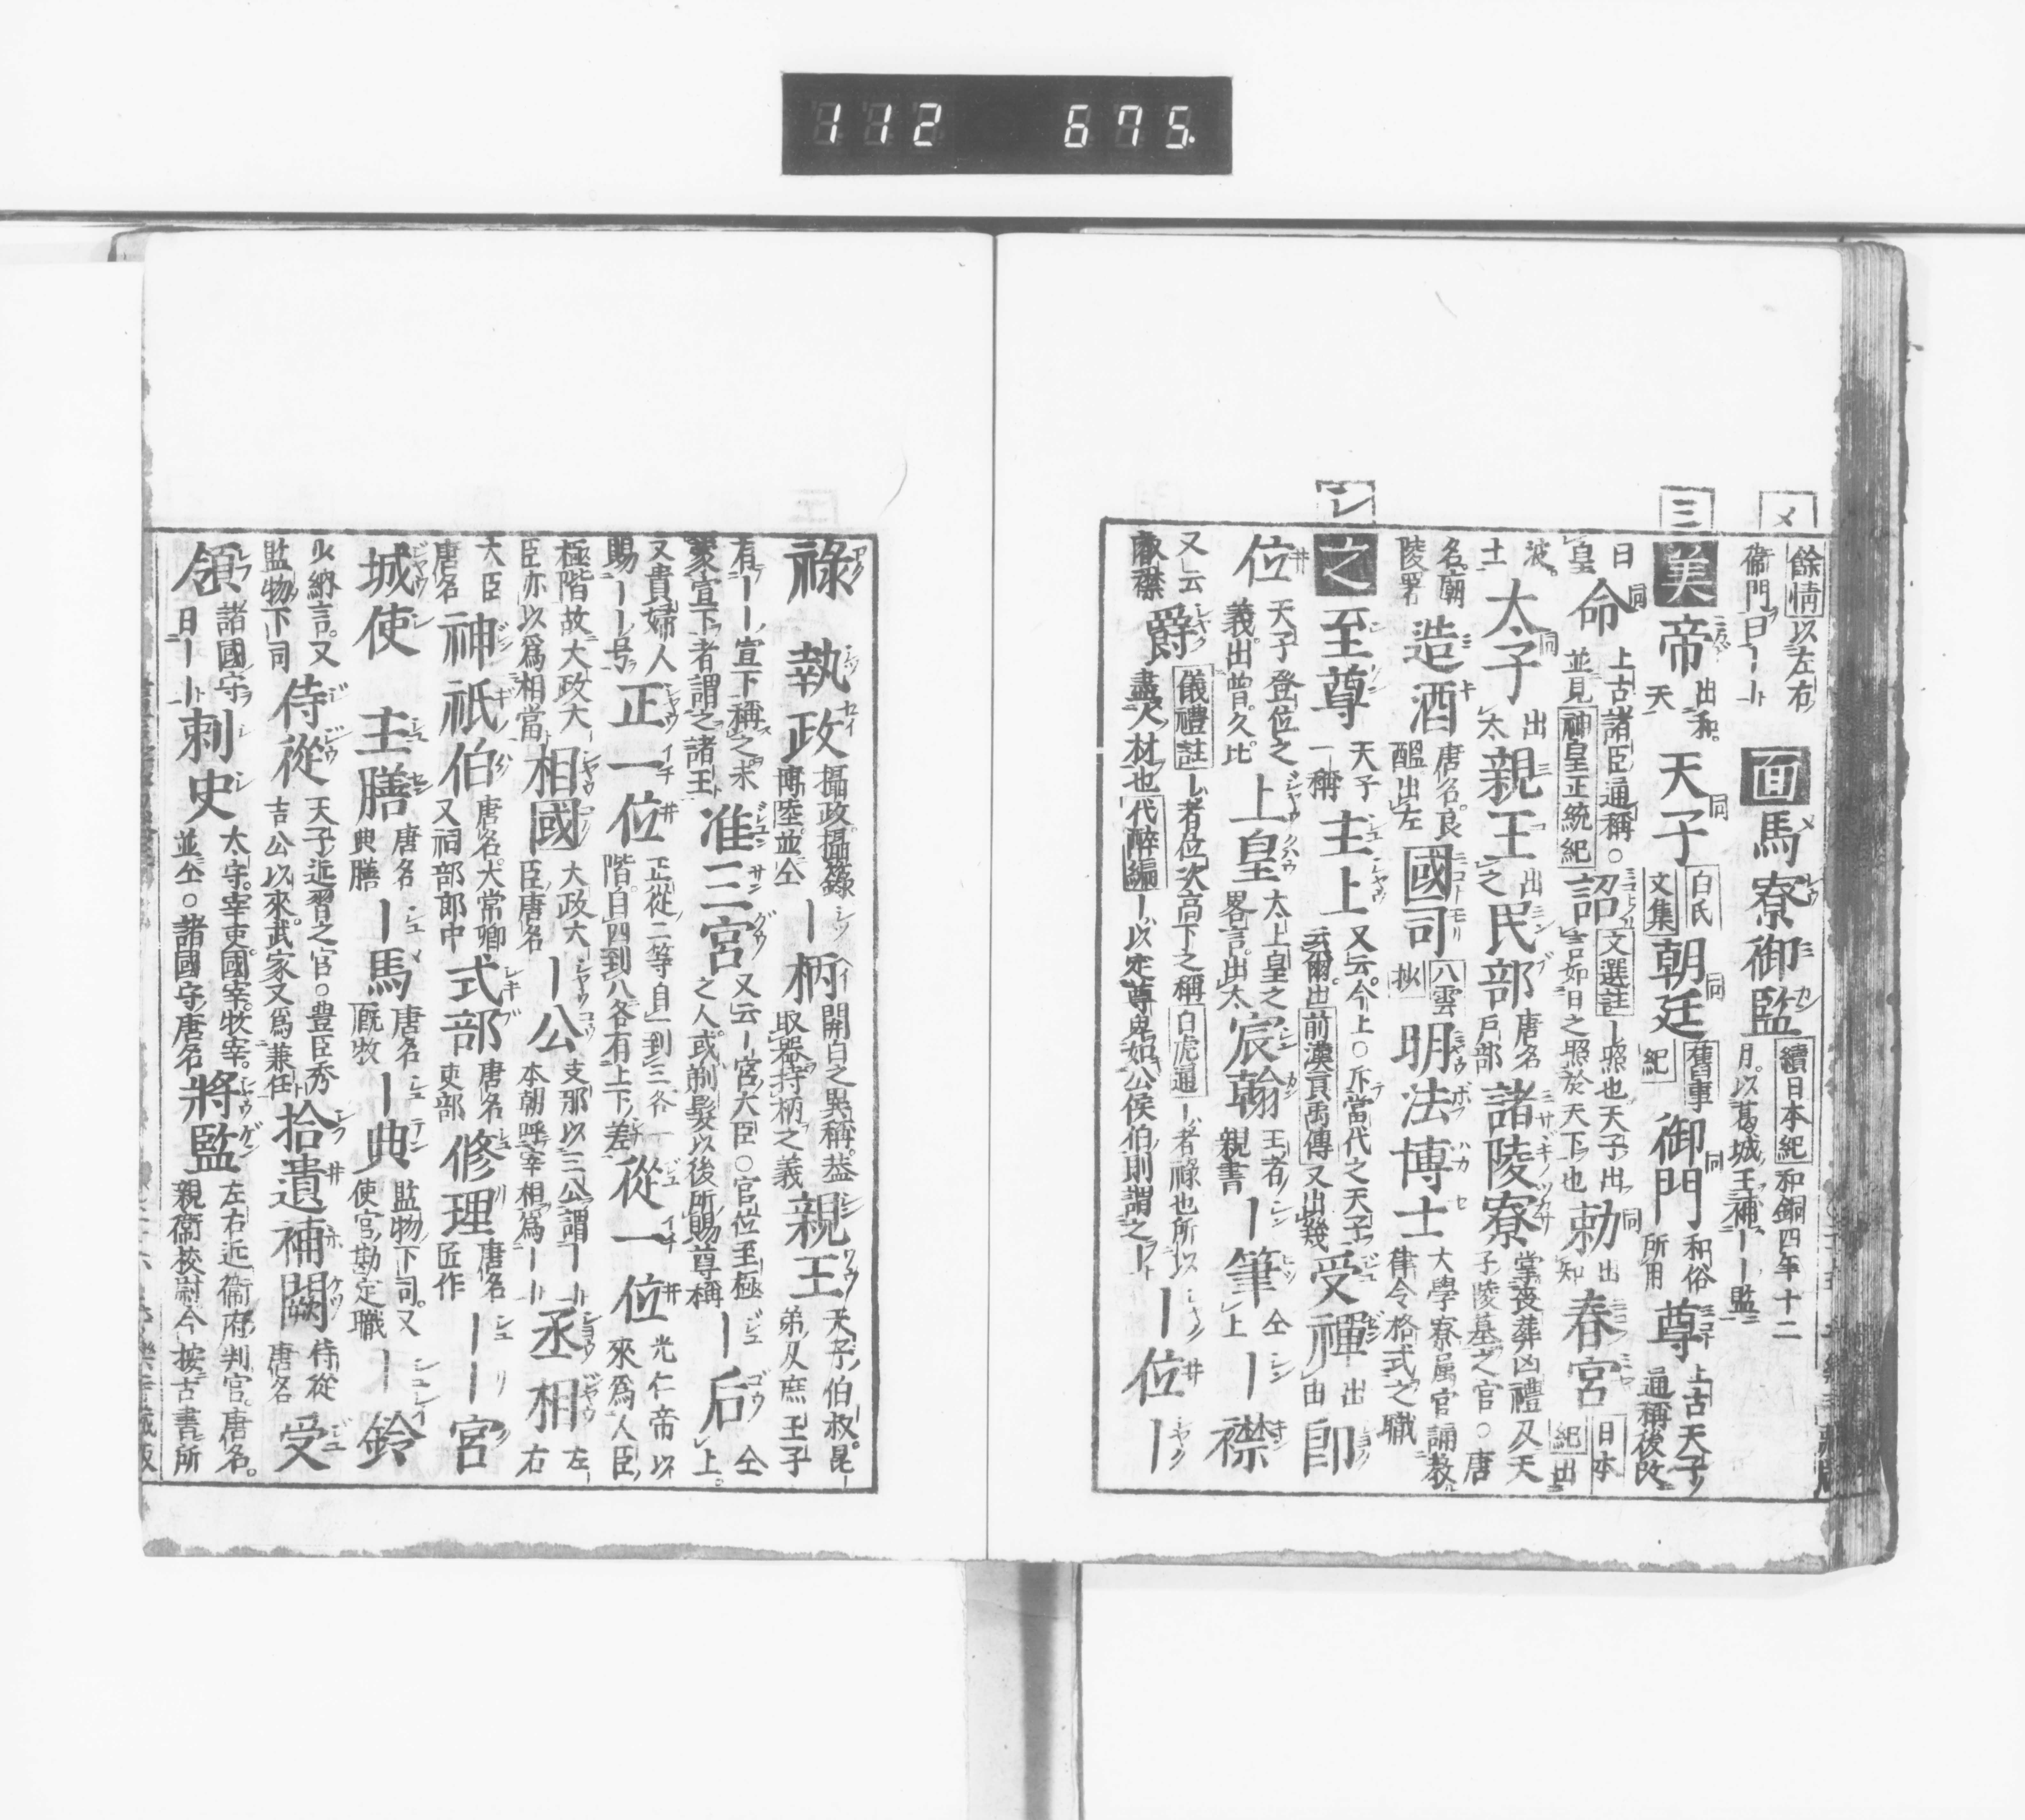 112 675
メ
餘情以左右
衞門曰ーー
面馬寮御監
續日本紀和銅四年十二
月以葛城王補ーー監
ミ
美帝出和
天子同
白氏文集
朝廷同
舊事紀
御門同
和俗所用
尊上古天子ノ通稱後改
日皇
命同
上古諸臣通稱○
並見神皇正統紀
詔文選註ー照也天子出
言如日之照於天下也
勅同
出知
春宮日本紀出
波土
太子同
出太
親王出之
民部唐名戸部
諸陵寮掌喪葬凶禮及天
子陵墓之官○唐
名朝陵署
造酒唐名良醞出左
國司八雲抄
明法博士大學寮属官誦教
律令格式之職
シ
之至尊天子一稱
主上又云今上○斥當代之天子
云爾出前漢貢禹傳又出幾
受禪出由
即
位天子登位之
義出曾久比
上皇太上皇之畧言出太
宸翰王者親書
ー筆仝上
ー襟
又云
叡襟
爵儀禮註ー者位次高下之稱白虎通ー者祿也所以
盡人材也代醉編ー以定尊卑如公侯伯則謂之ー
ー位ー
祿
執政攝政攝籙
博陸並仝
ー柄開白之異稱葢
取器持柄之義
親王天子伯叔昆ー
弟及庶王子
有ーー宣下稱之未
蒙宣下者謂之諸王
准三宮又云ー宮大臣○官位至極
之人或剃髮以後所賜尊稱
ー后仝上
又貴婦人
賜ーー号
正一位正從二等自一到三各一
階自四到八各有上下差
從一位光仁帝以
來爲人臣
極階故大政大ー
臣亦以爲相當
相國大政大ー
臣唐名
ー公支那以三公謂ー
本朝呼宰相爲ー
丞相左ー右
大臣
唐名
神祇伯唐名大常卿
又祠部郎中
式部唐名吏部
修理唐名匠作
ーー宮
城使
主膳唐名典膳
ー馬唐名厩牧
ー典監物下司又
使官勘定職
ー鈴
少納言又
監物下同
侍從天子近習之官○豊臣秀
吉公以來武家又爲兼任
拾遺補闕侍從唐名
受
領諸國守
曰ーー
刺史大守宰吏國宰牧宰
並仝○諸國守唐名
將監左右近衞府判官唐名
親衞校尉今按古書所